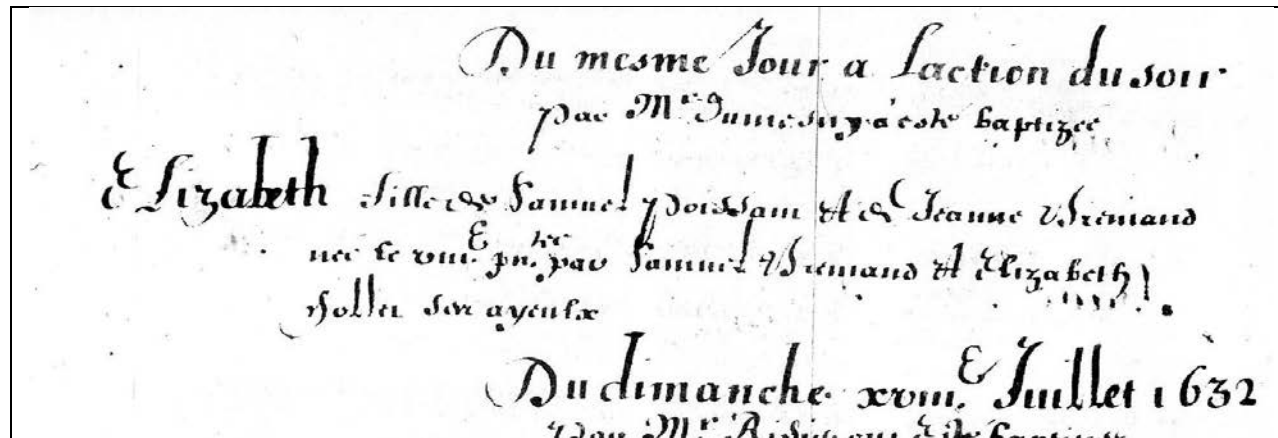 Du mesme Jour a Laction du soir
par Mr. Dumesny a este baptizee
Elizabeth fille de Samuel Poissant et de Jeanne
nee le viii.e pntee par Samuel et Elizabeth
ses ayeulx
Du dimanche xviii.e Juillet 1632
par Mr. baptizee